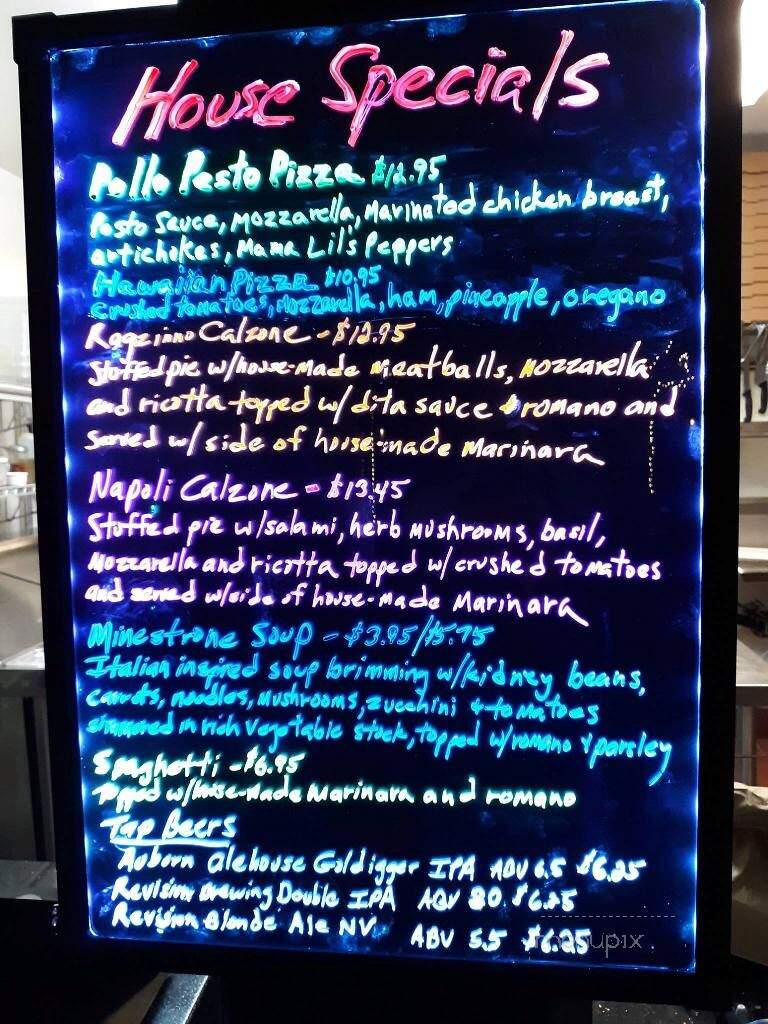 House Specials
Pollo Pesto Pizza $12.95
Pesto Sauce, Mozzarella, Marinated chicken breast,
artichokes, Mama Lil's Peppers
Hawaiian Pizza $10.95
Crushed tomatoes, Mozzarella, ham, pineapple, oregano
Calzone - $12.95
Stuffed pie w/house-made meatballs, mozzarella
and ricotta topped w/ dita sauce & romano and
served w/ side of house-made Marinara
Napoli Calzone - $13.45
Stuffed pie w/salami, herb mushrooms, basil,
Mozzarella and ricotta topped w/ crushed tomatoes
and served w/side of house-made Marinara
Minestrone Soup - $3.95/$5.95
Italian inspired soup brimming w/kidney beans,
carrots, noodles, mushrooms, zucchini & tomatoes
simmered in rich vegetable stock, topped w/romano & parsley
Spaghetti - $6.95
topped w/house-made Marinara and romano
Tap Beers
Auburn alehouse Goldigger IPA ABV 6.5 $6.25
Revision Brewing Double IPA ABV 8.0 $6.25
Revision Blonde Ale NV ABV 5.5 $6.25